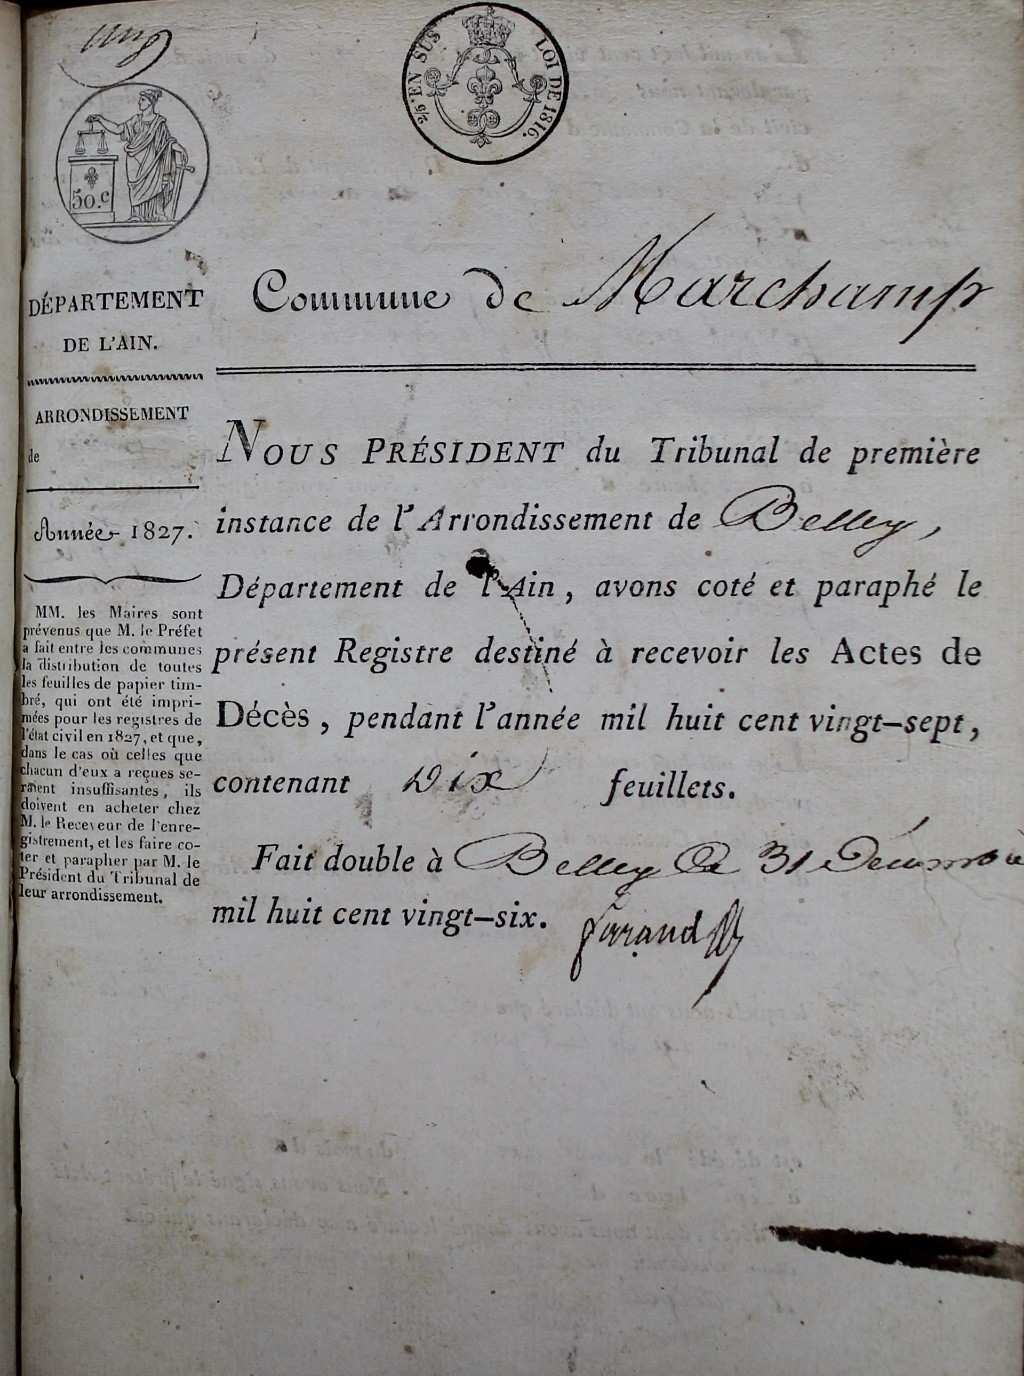 2/5.e EN SUS
LOI DE 1816.
50.c
DÉPARTEMENT
DE L'AIN.
ARRONDISSEMENT
de
Année 1827.
MM. les Maires sont
prévenus que M. le Préfet
a fait entre les communes
la distribution de toutes
les feuilles de papier tim-
bré, qui ont été impri-
mées pour les registres de
l'état civil en 1827, et que,
dans le cas où celles que
chacun d'eux a reçues se-
raient insuffisantes, ils
doivent en acheter chez
M. le Receveur de l'enre-
gistrement, et les faire co-
ter et parapher par M. le
Président du Tribunal de
leur arrondissement.
Commune de Marchamp
NOUS PRÉSIDENT du Tribunal de première
instance de l'Arrondissement de Belley,
Département de l'Ain, avons coté et paraphé le
présent Registre destiné à recevoir les Actes de
Décès, pendant l'année mil huit cent vingt-sept,
contenant Dix feuillets.
Fait double à Belley le 31 Décembre
mil huit cent vingt-six.
Garaud